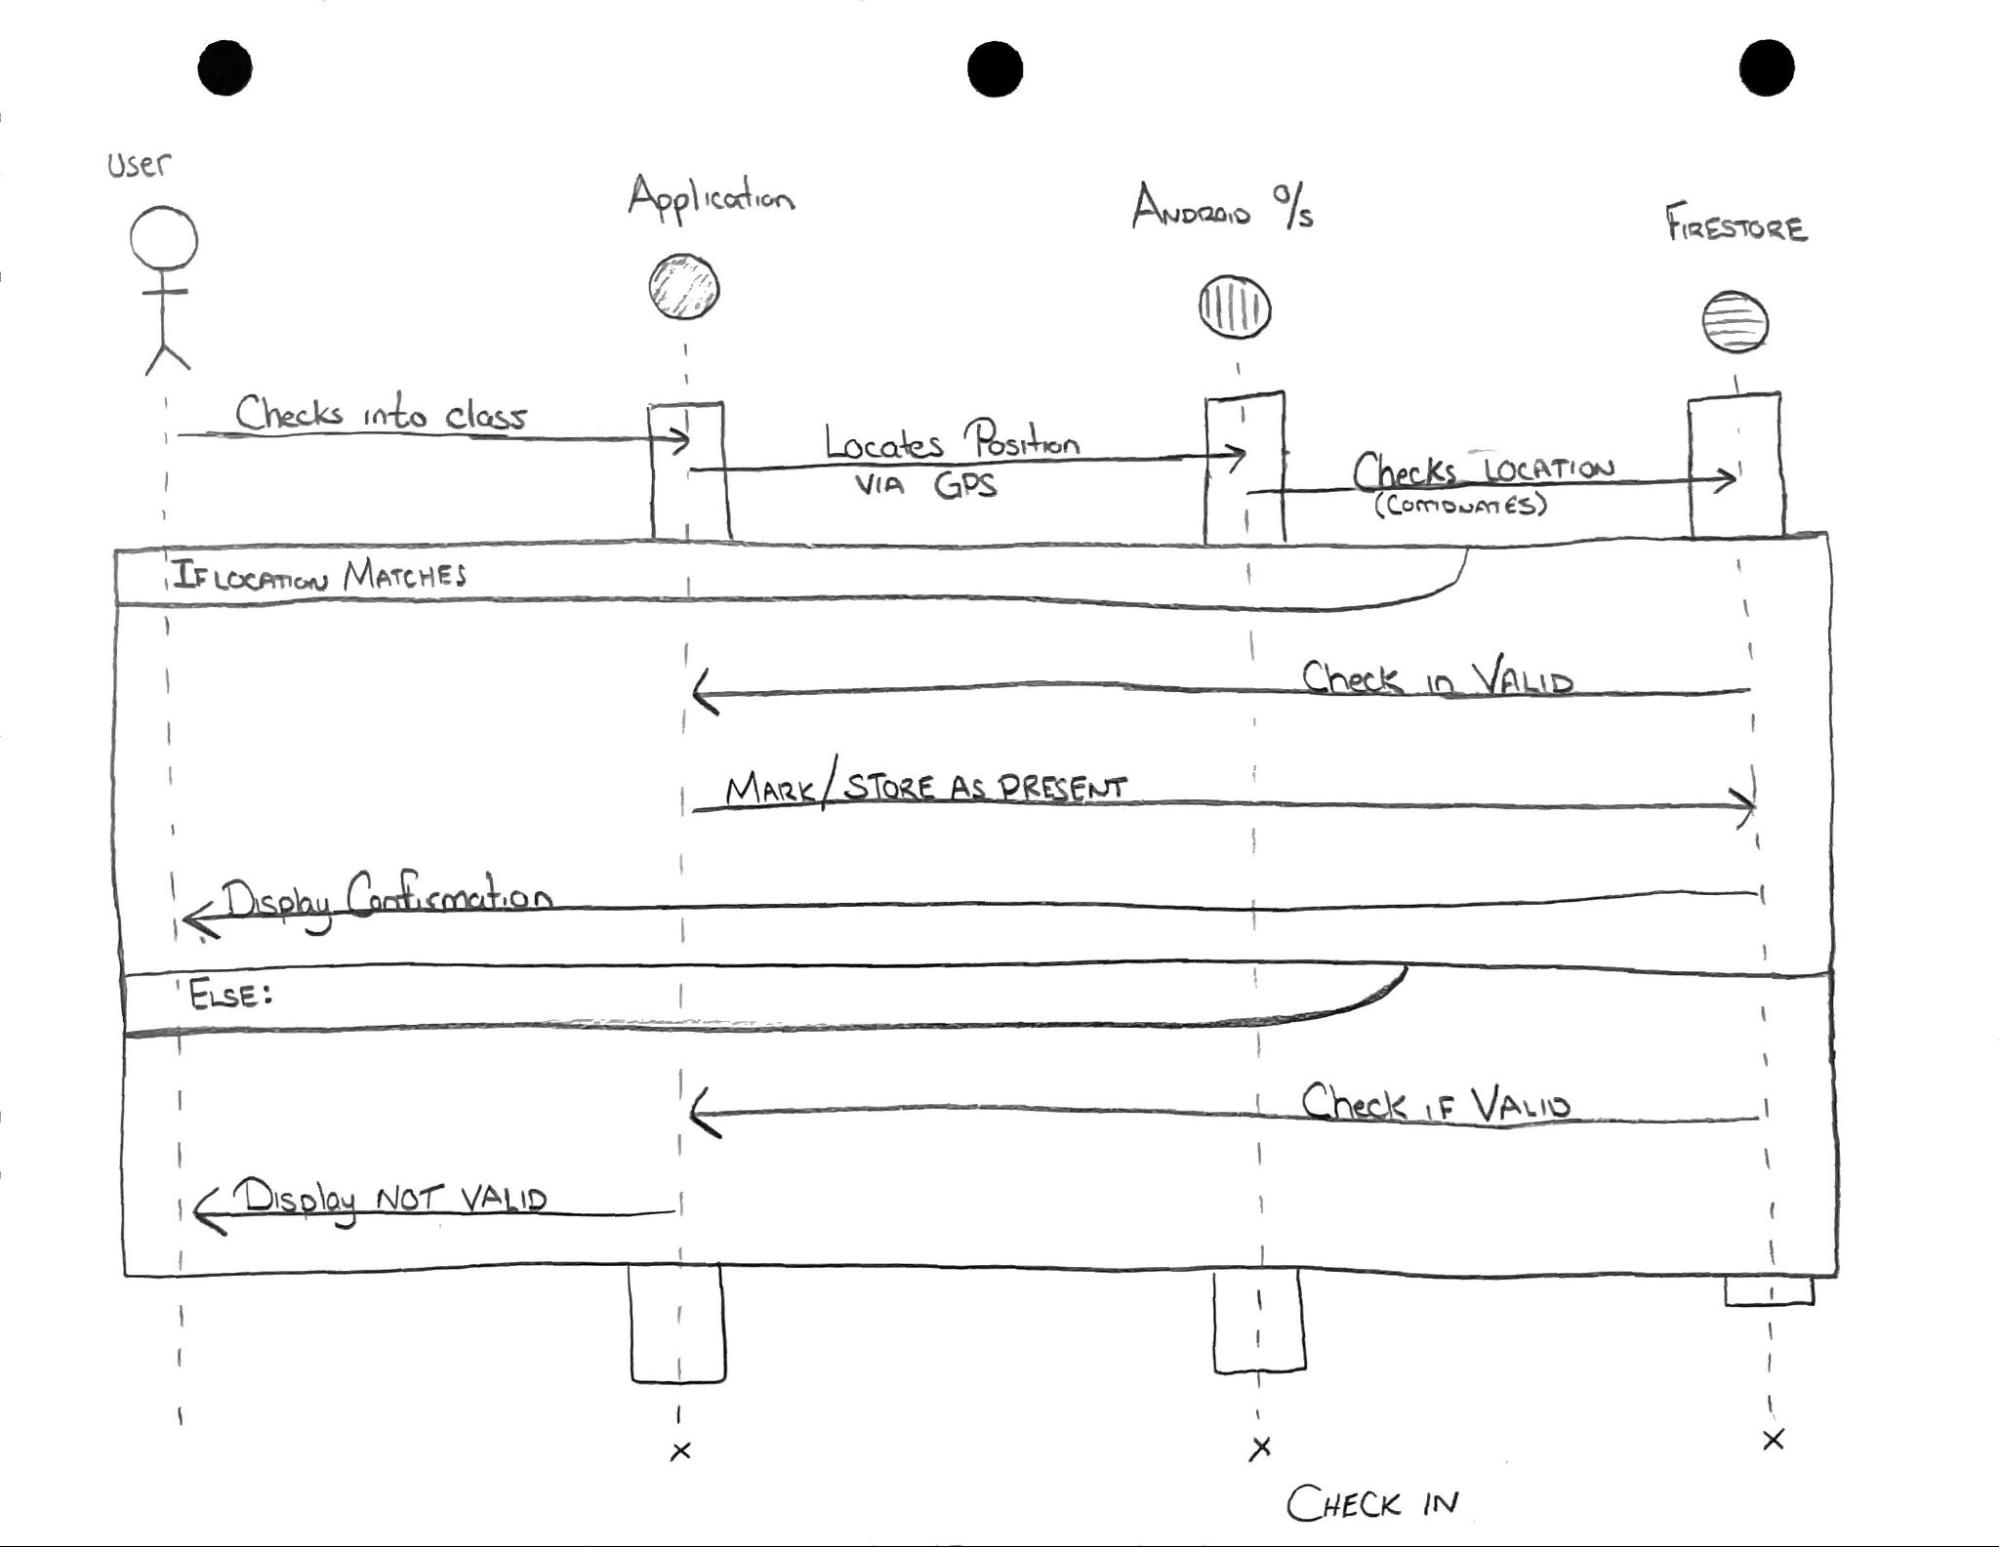 User
Application
ANDROID O/S
FIRESTORE
Checks into class
Locates Position
VIA GPS
Checks LOCATION
IF LOCATION MATCHES
Check in VALID
MARK/STORE AS PRESENT
Display Confirmation
ELSE:
Check IF VALID
Display NOT VALID
CHECK IN